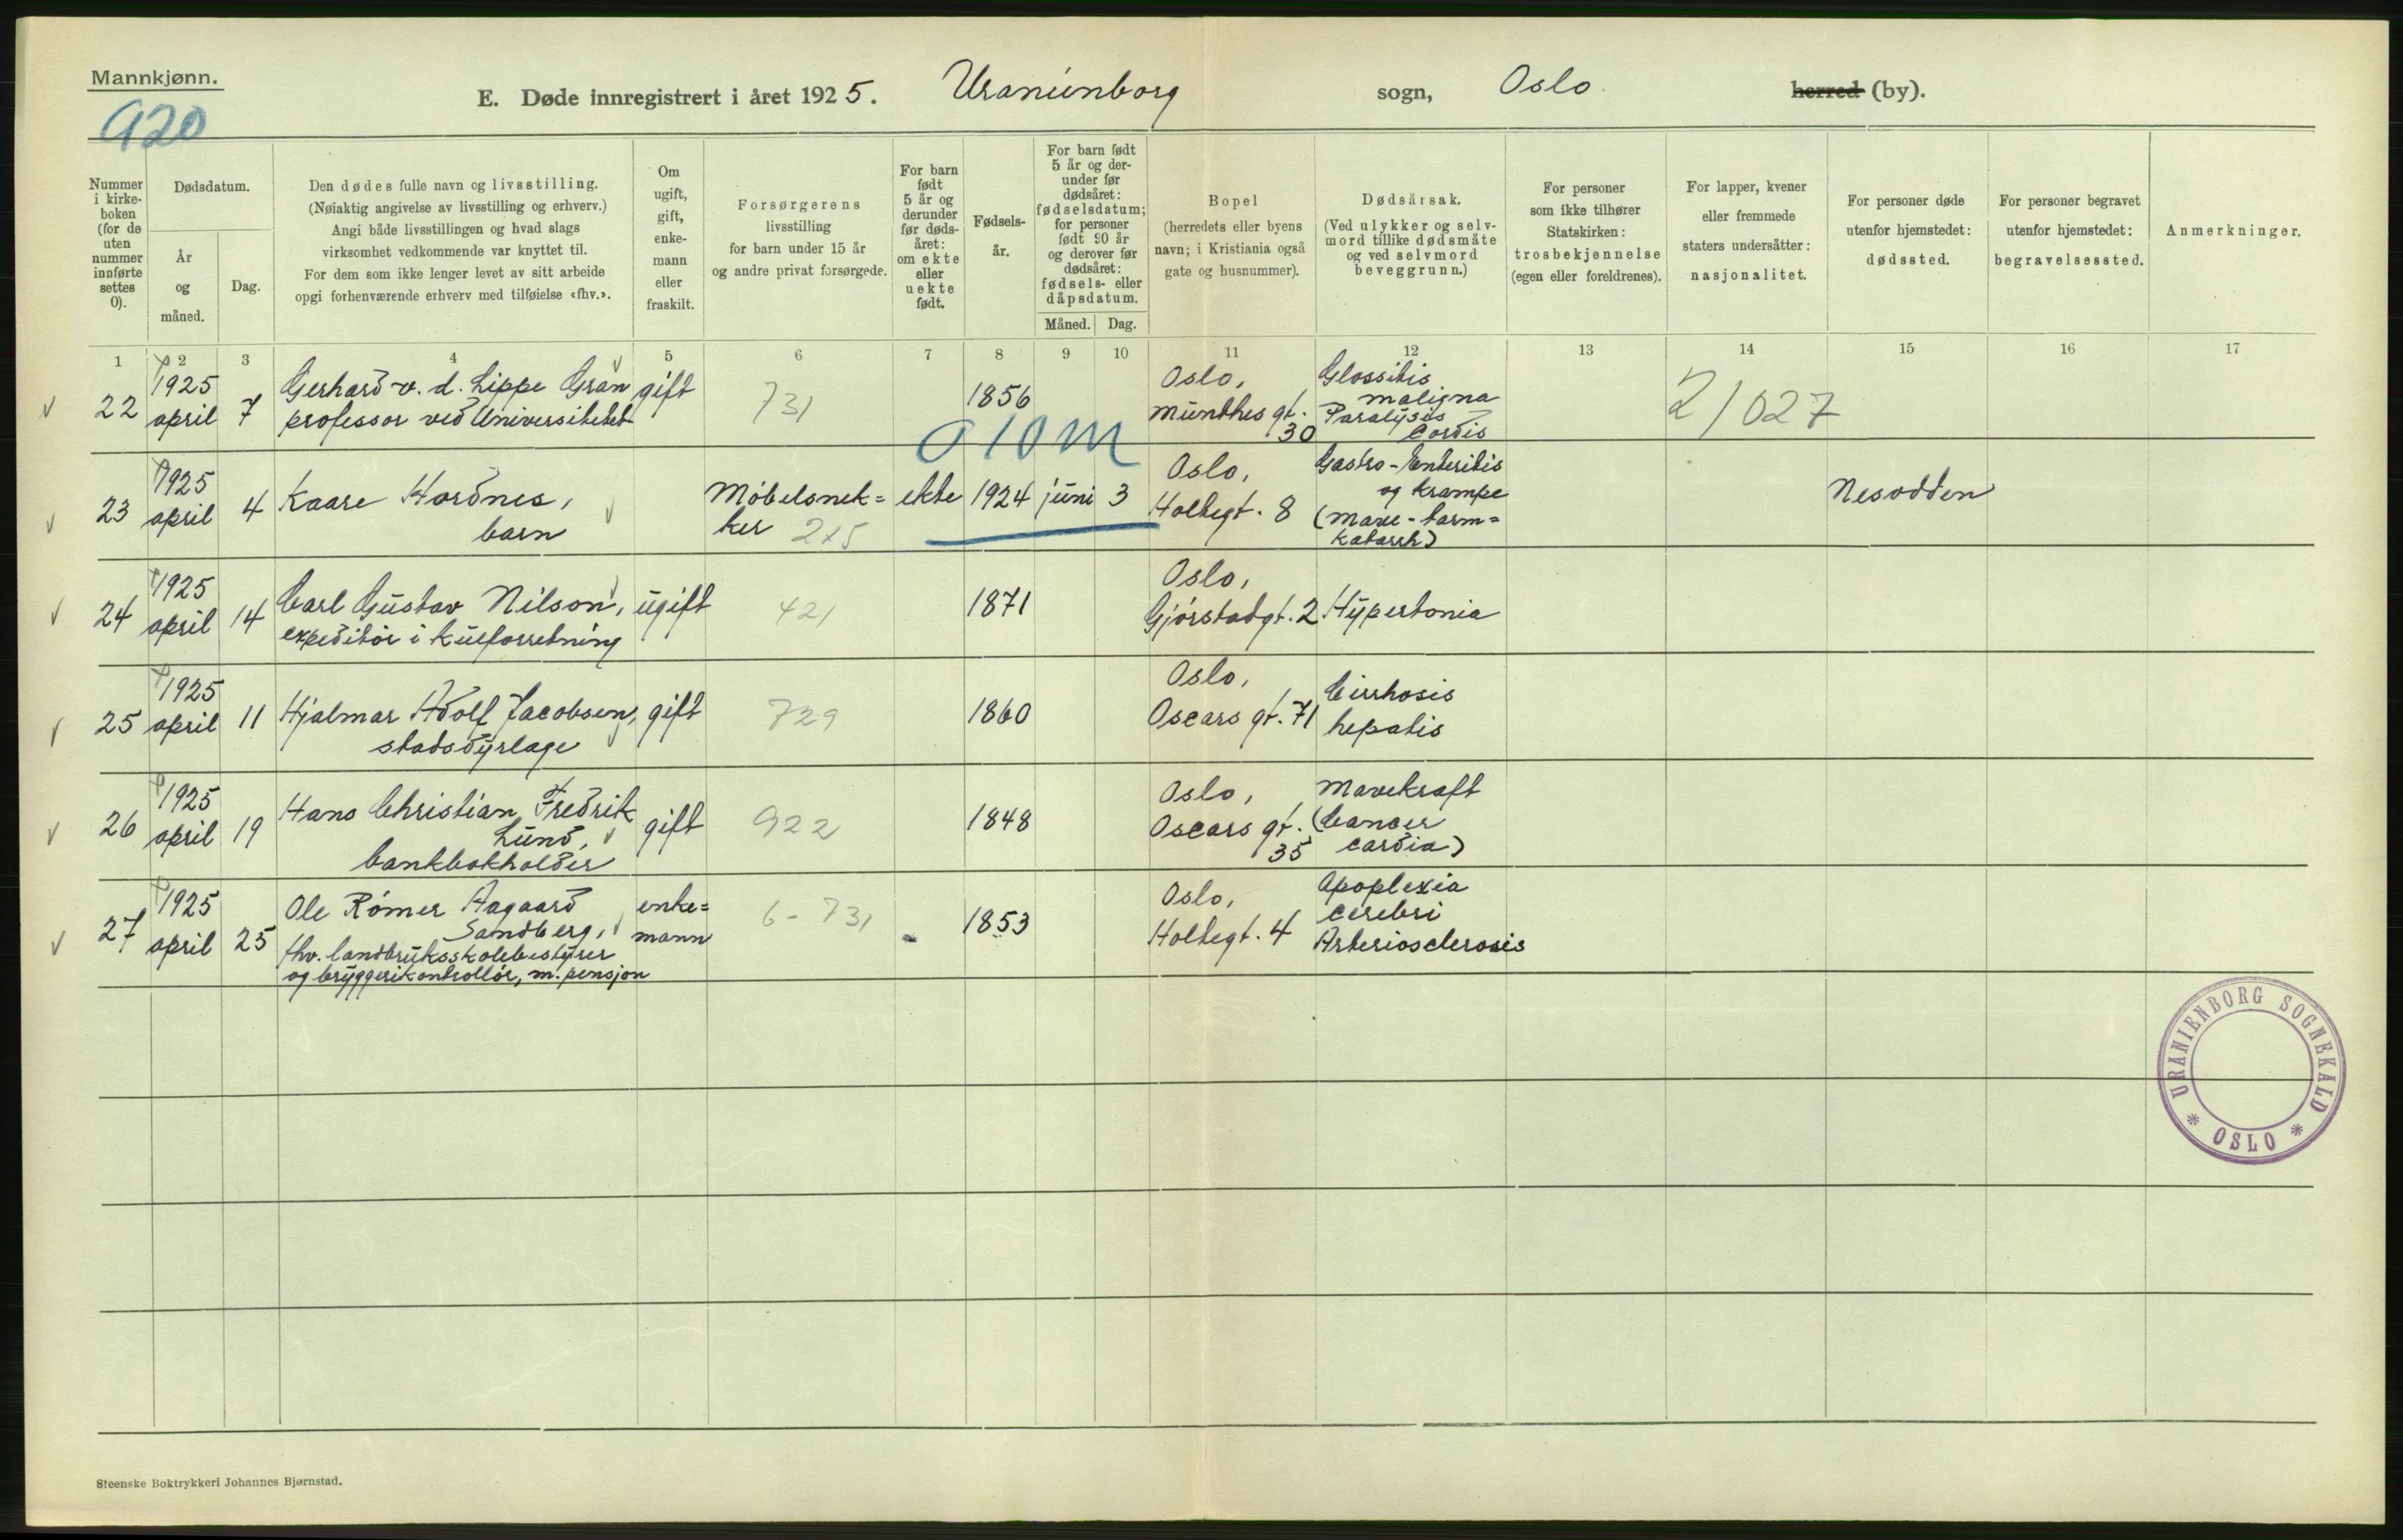 Mannkjønn.
920
E. Døde innregistrert i året 1925. Uranienborg sogn, Oslo herred (by).
Nummer i kirke-boken (for de uten nummer innførte settes 0).
Dødsdatum.
År og måned.
Dag.
Den dødes fulle navn og livsstilling.
(Nøiaktig angivelse av livsstilling og erhverv.)
Angi både livsstillingen og hvad slags
virksomhet vedkommende var knyttet til.
For dem som ikke lenger levet av sitt arbeide
opgi forhenværende erhverv med tilføielse «fhv.».
Om ugift, gift, enke-mann eller fraskilt.
Forsørgerens
livsstilling
for barn under 15 år
og andre privat forsørgede.
For barn født 5 år og derunder før døds-året: om ekte eller uekte født.
Fødsels-år.
For barn født 5 år og der-under før dødsåret: fødselsdatum; for personer født 90 år og derover før dødsåret: fødsels- eller dåpsdatum.
Måned. Dag.
Bopel
(herredets eller byens
navn; i Kristiania også
gate og husnummer).
Dødsårsak.
(Ved ulykker og selv-
mord tillike dødsmåte
og ved selvmord
beveggrunn.)
For personer
som ikke tilhører
Statskirken:
trosbekjennelse
(egen eller foreldrenes).
For lapper, kvener
eller fremmede
staters undersåtter:
nasjonalitet.
For personer døde
utenfor hjemstedet:
dødssted.
For personer begravet
utenfor hjemstedet:
begravelsessted.
Anmerkninger.
1 2 3 4 5 6 7 8 9 10 11 12 13 14 15 16 17
22 1925 april 7 Gerhard v. d. Lippe Gran professor ved Universitetet gift 731 1856 Oslo, Munthes gt. 30 Glossitis maligna Paralysis cordis 21027
010m
23 1925 april 4 Kaare Hordnes, barn Møbelsnek=ker 2x5 ekte 1924 juni 3 Oslo, Holtegt. 8 Gastro-Enteritis og krampe (mave-tarm=katarrh) Nesodden
24 1925 april 14 Carl Gustav Nilson, expeditør i kulforretning ugift 421 1871 Oslo, Gjørstadgt. 2 Hypertonia
25 1925 april 11 Hjalmar Adolf Jacobsen, stadsdyrlæge gift 729 1860 Oslo, Oscars gt. 71 Cirrhosis hepatis
26 1925 april 19 Hans Christian Fredrik Lund, bankbokholder gift 922 1848 Oslo, Oscars gt. 35 Mavekræft (Cancer cardia)
27 1925 april 25 Ole Rømer Aagaard Sandberg, fhv. landbruksskolebestyrer og bryggerikontrollør, m. pensjon enke=mann 6-731 1853 Oslo, Holtegt. 4 Apoplexia cerebri Arteriosclerosis
URANIENBORG SOGNEKALD * OSLO *
Steenske Boktrykkeri Johannes Bjørnstad.